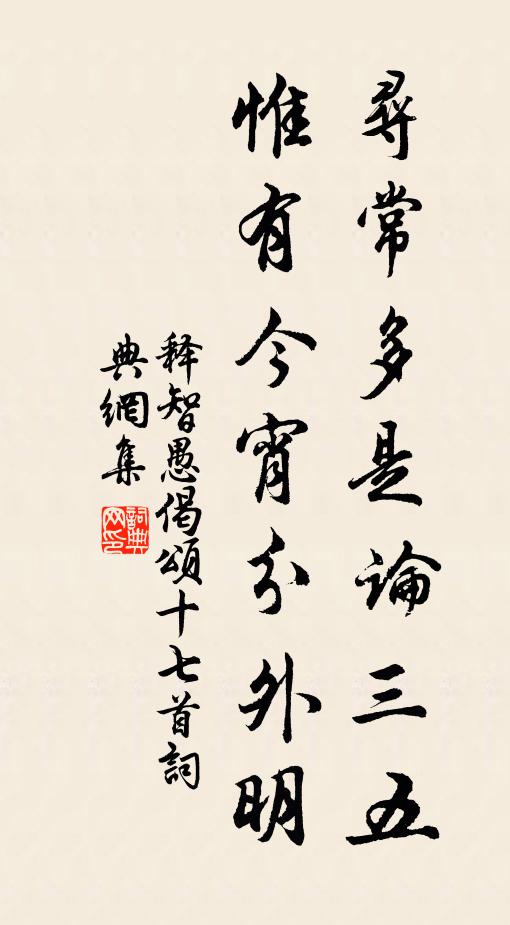 尋常多是論三五
惟有今宵分外明
释智愚偈頌十七首詞
典網集
詞典
网印